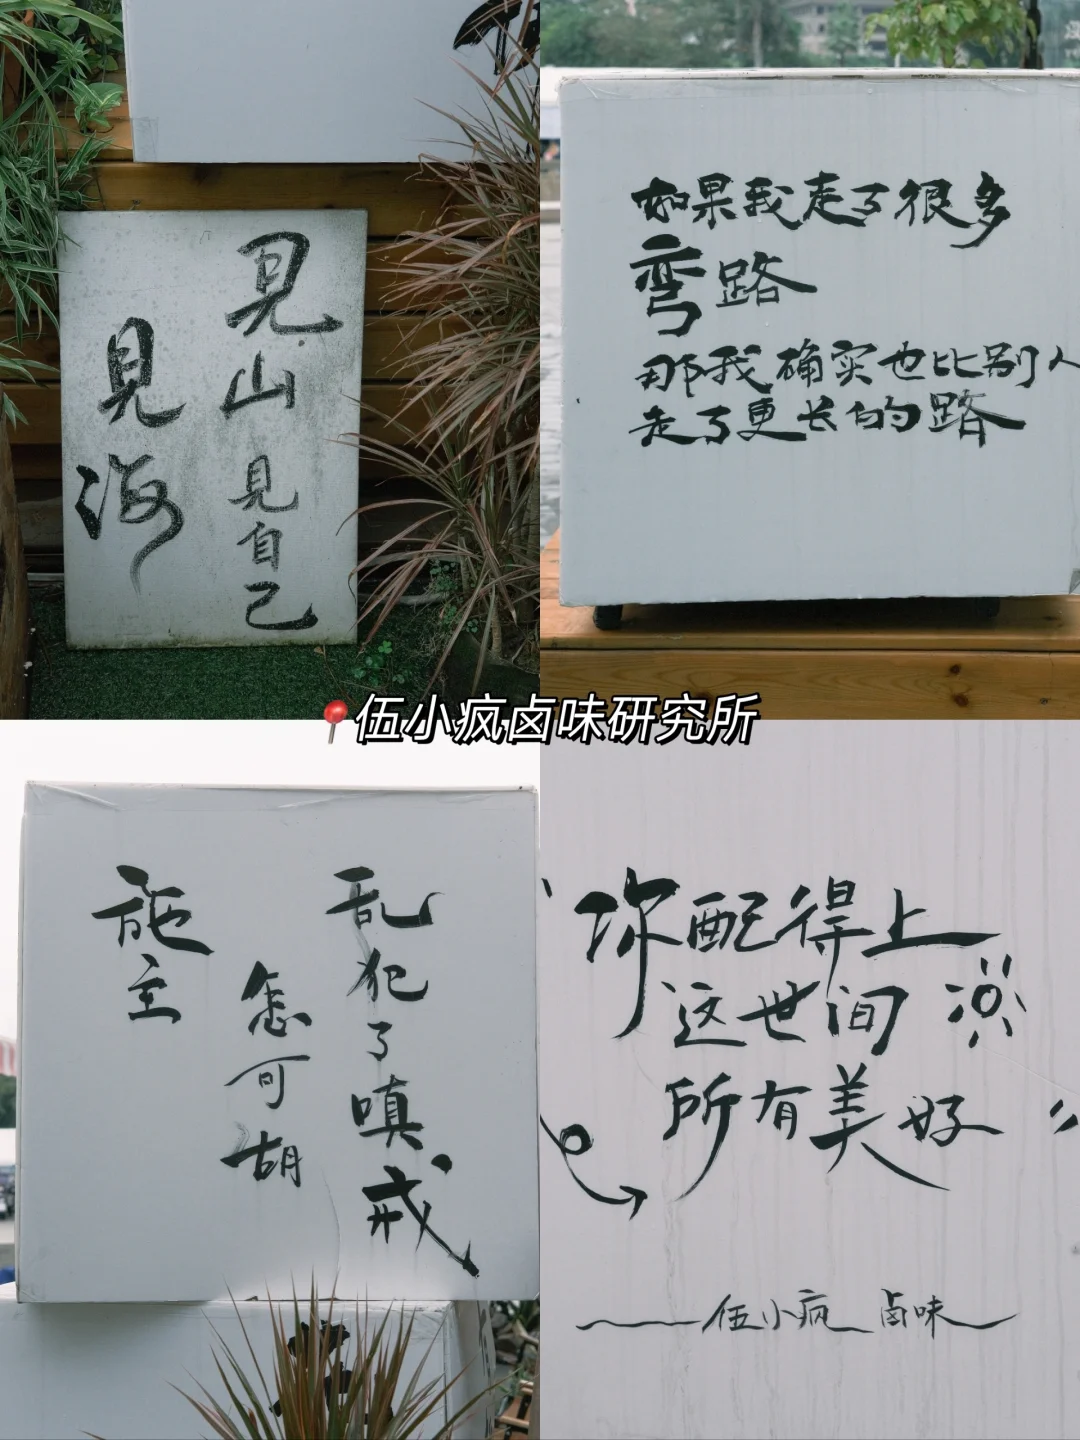 見山見自己
見海
如果我走了很多
弯路
那我确实也比别人
走了更长的路
📍伍小疯卤味研究所
施主
怎可胡
乱犯了嗔戒
你配得上
这世间
所有美好
——伍小疯 卤味